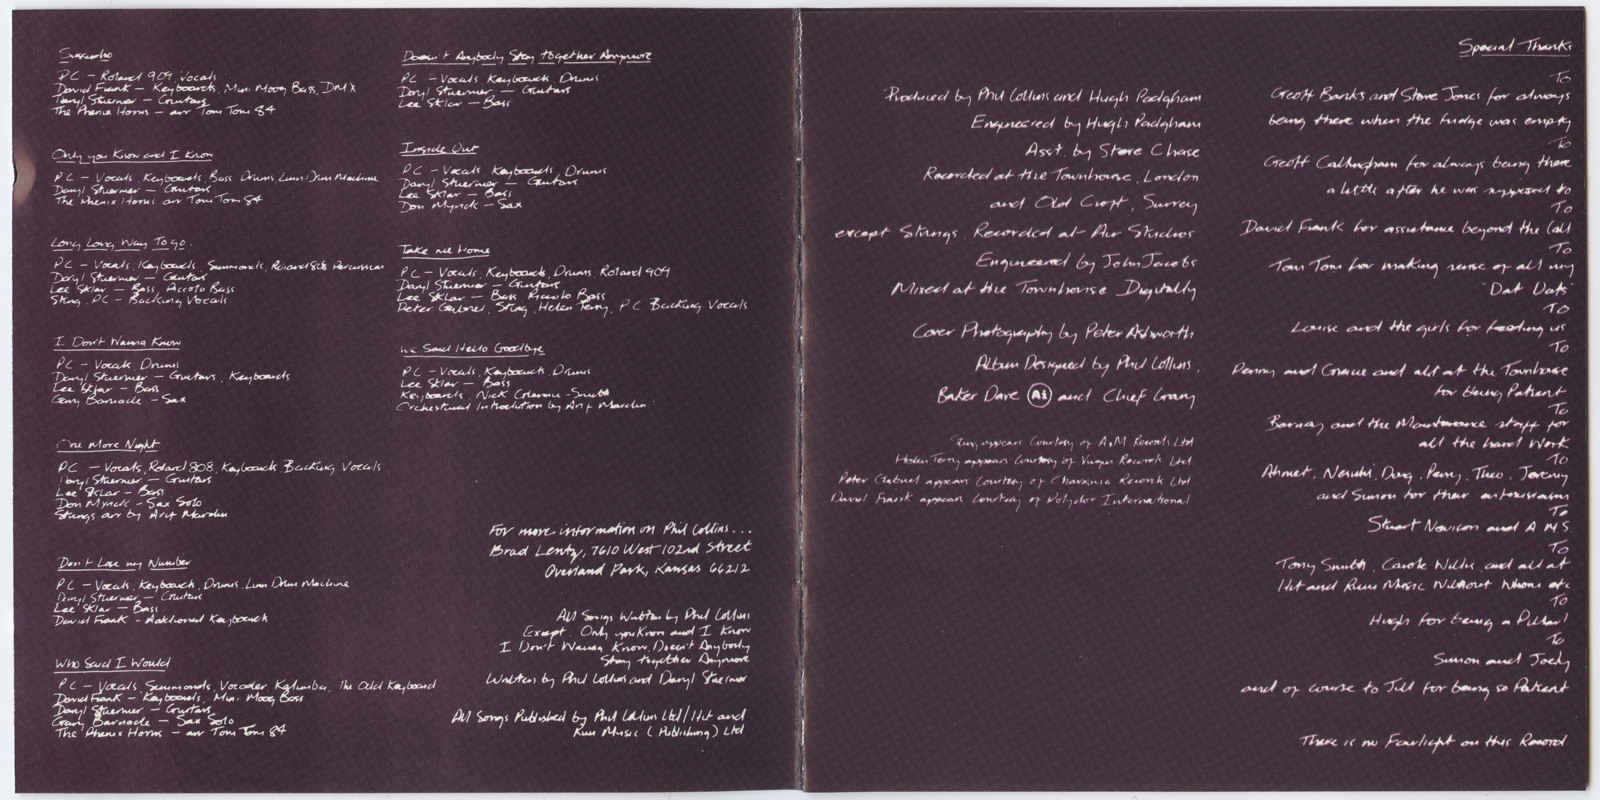 Sussudio
PC - Roland 909, Vocals
David Frank - Keyboards, Mini Moog Bass, DMX
Daryl Stuermer - Guitars
The Phenix Horns - arr Tom Tom 84
Only you Know and I Know
PC - Vocals, Keyboards, Bass, Drums, Linn Drum Machine
Daryl Stuermer - Guitars
The Phenix Horns arr Tom Tom 84
Long Long Way To go
PC - Vocals, Keyboards, Simmonds, Roland 808 Percussion
Daryl Stuermer - Guitar
Lee Sklar - Bass, Piccolo Bass
Sting, PC - Backing Vocals
I Don't Wanna Know
PC - Vocals, Drums
Daryl Stuermer - Guitars, Keyboards
Lee Sklar - Bass
Gary Barnacle - Sax
One More Night
PC - Vocals, Roland 808, Keyboards, Backing Vocals
Daryl Stuermer - Guitars
Lee Sklar - Bass
Don Myrick - Sax Solo
Strings arr by Arif Mardin
Don't Lose my Number
PC - Vocals, Keyboards, Drums, Linn Drum Machine
Daryl Stuermer - Guitars
Lee Sklar - Bass
David Frank - Additional Keyboards
Who Said I Would
PC - Vocals, Simmonds, Vocoder, Kalimba, the Odd Keyboard
David Frank - Keyboards, Mini Moog Bass
Daryl Stuermer - Guitars
Gary Barnacle - Sax Solo
The Phenix Horns - arr Tom Tom 84
Doesn't Anybody Stay together Anymore
PC - Vocals, Keyboards, Drums
Daryl Stuermer - Guitars
Lee Sklar - Bass
Inside Out
PC - Vocals, Keyboards, Drums
Daryl Stuermer - Guitars
Lee Sklar - Bass
Don Myrick - Sax
Take me Home
PC - Vocals, Keyboards, Drums, Roland 909
Daryl Stuermer - Guitars
Lee Sklar - Bass Piccolo Bass
Peter Gabriel, Sting, Helen Terry, PC Backing Vocals
We Said Hello Goodbye
PC - Vocals, Keyboards, Drums
Lee Sklar - Bass
Keyboards, Nick Glennie-Smith
Orchestural Introduction by Arif Mardin
For more information on Phil Collins...
Brad Lentz, 7610 West 102nd Street
Overland Park, Kansas 66212
All Songs Written by Phil Collins
Except. Only you Know and I Know
I Don't Wanna Know, Doesn't Anybody
Stay together Anymore
Written by Phil Collins and Daryl Stuermer
All Songs Published by Phil Collins Ltd/Hit and
Run Music (Publishing) Ltd
Produced by Phil Collins and Hugh Padgham
Engineered by Hugh Padgham
Asst. by Steve Chase
Recorded at the Townhouse, London
and Old Croft, Surrey
except Strings, Recorded at Air Studios
Engineered by John Jacobs
Mixed at the Townhouse Digitally
Cover Photography by Peter Ashworth
Album Designed by Phil Collins,
Baker Dave Ai and Chief Grary
Sting appears Courtesy of A+M Records Ltd
Helen Terry appears Courtesy of Virgin Records Ltd
Peter Gabriel appears Courtesy of Charisma Records Ltd
David Frank appears Courtesy of Polydor International
Special Thanks
To
Geoff Banks and Steve Jones for always
being there when the fridge was empty
To
Geoff Callingham for always being there
a little after he was supposed to
To
David Frank for assistance beyond the Call
To
Tom Tom for making sense of all my
"Dat Dats"
To
Louise and the girls for feeding us
To
Penny and Gracie and all at the Townhouse
for being Patient
To
Barney and the Maintenance staff for
all the hard Work
To
Ahmet, Nesuhi, Doug, Perry, Theo, Jeremy
and Simon for their enthusiasm
To
Stuart Newison and AMS
To
Tony Smith, Carole Willis, and all at
Hit and Run Music Without Whom etc
To
Hugh for being a Pillar!
To
Simon and Joely
and of course to Jill for being so Patient
There is no Fairlight on this Record